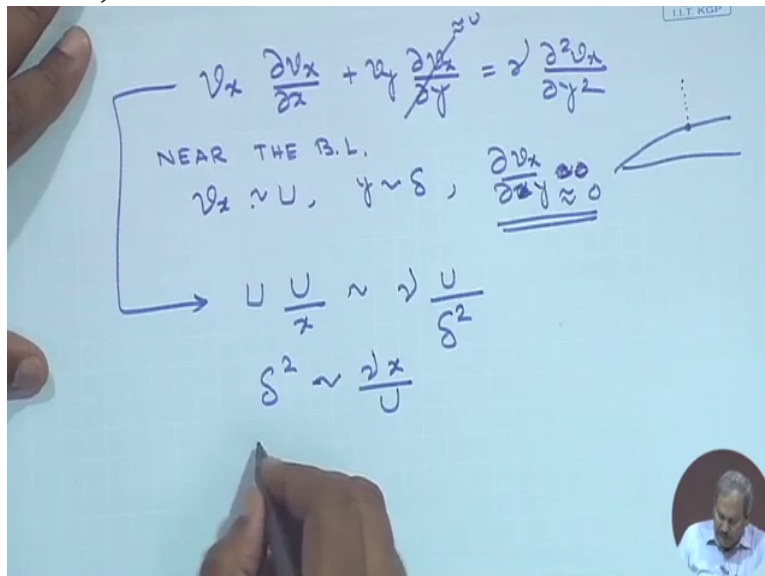 I.I.T. KGP
≈ 0
𝑣x ∂𝑣x/∂x + 𝑣y ∂𝑣x/∂y = ν ∂²𝑣x/∂y²
NEAR THE B.L.
𝑣x ~ U, y ~ δ, ∂𝑣x/∂y ≈ 0
U U/x ~ ν U/δ²
δ² ~ νx/U